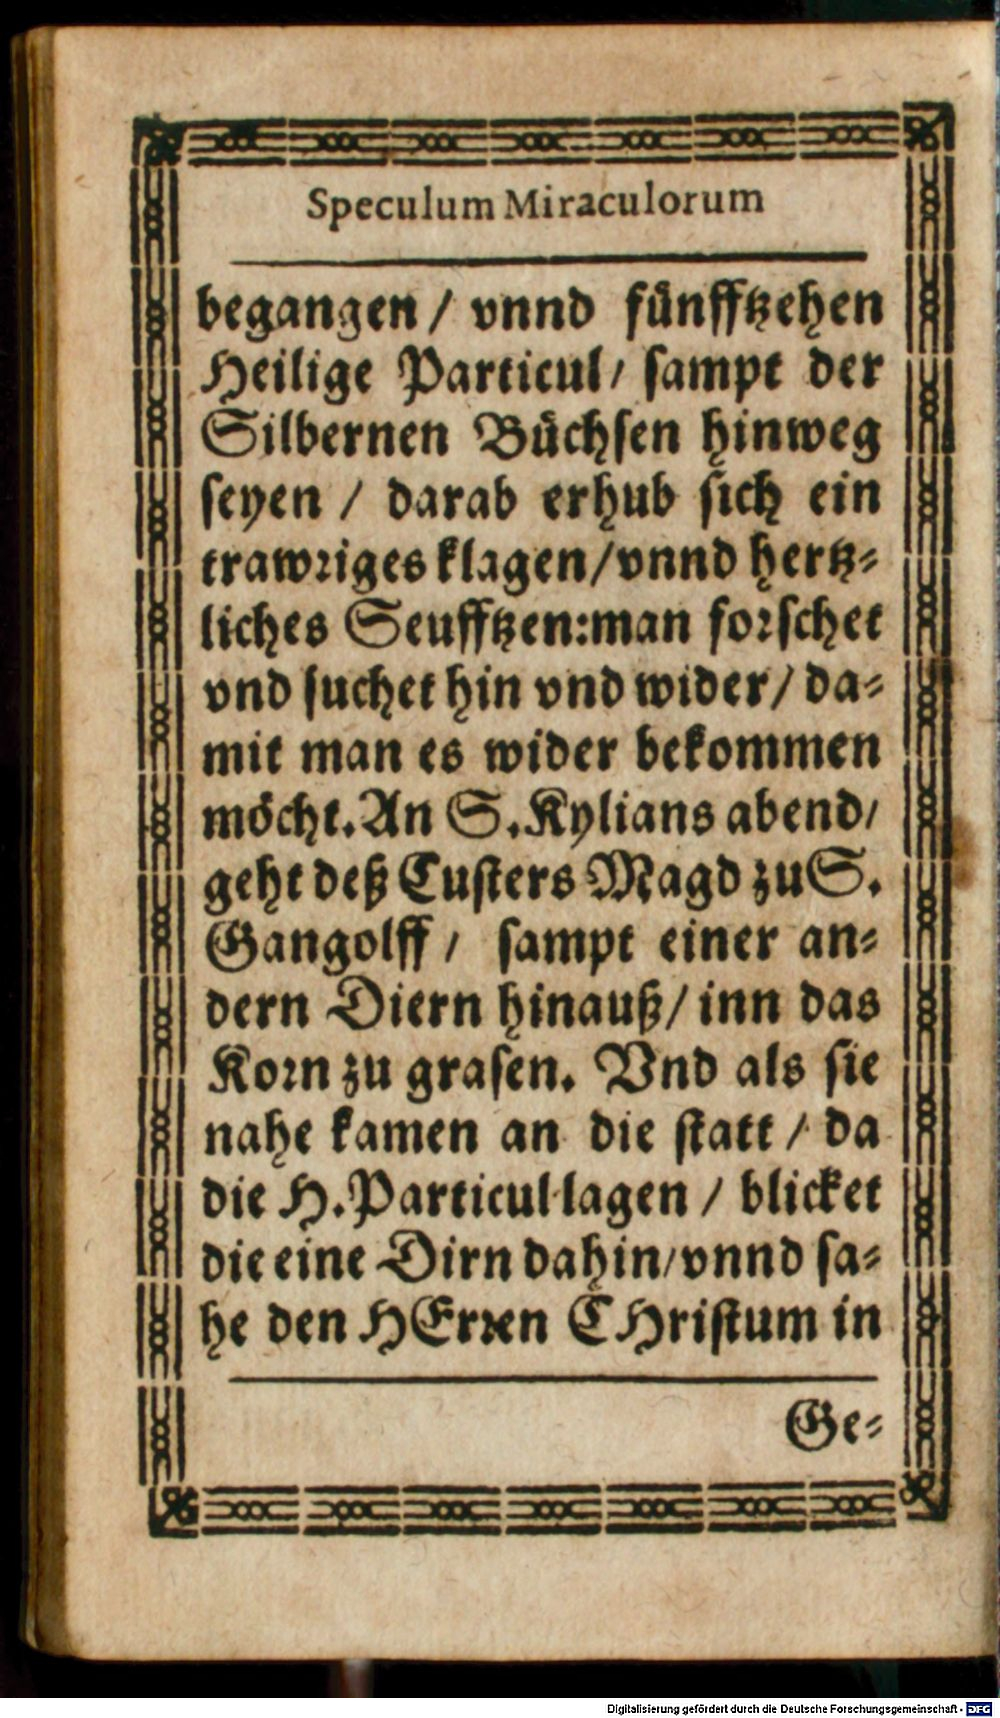 Speculum Miraculorum
begangen / vnnd fünfftzehen
Heilige Particul / sampt der
Silbernen Büchsen hinweg
seyen / darab erhub sich ein
trawriges klagen / vnnd hertz-
liches Seufftzen: man forschet
vnd suchet hin vnd wider / da-
mit man es wider bekommen
möcht. An S. Kylians abend /
geht deß Custers Magd zu S.
Gangolff / sampt einer an-
dern Diern hinauß / inn das
Korn zu grasen. Vnd als sie
nahe kamen an die statt / da
die H. Particul lagen / blicket
die eine Dirn dahin / vnnd sa-
he den HErren CHristum in
Ge-
Digitalisierung gefördert durch die Deutsche Forschungsgemeinschaft - DFG